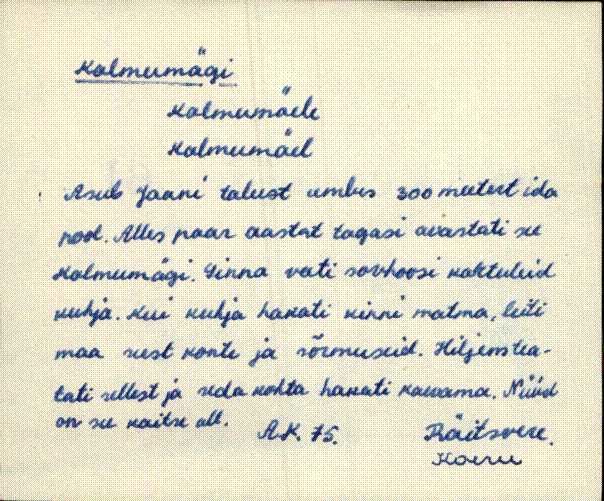 Kalmumägi
Kalmumäele
Kalmumäel
Asub Jaani talust umbes 300 meetert ida
pool. Alles paar aastat tagasi avastati see
Kalmumägi. Sinna veti sovhoosi kartuleid
kuhja. Kui kuhja hakati kinni matma, leiti
maa seest konte ja sõrmuseid. Hiljem tea-
tati sellest ja seda kohta hakati kaevama. Nüüd
on see kaitse all.
A.K. 75.
Räitsvere.
Koeru